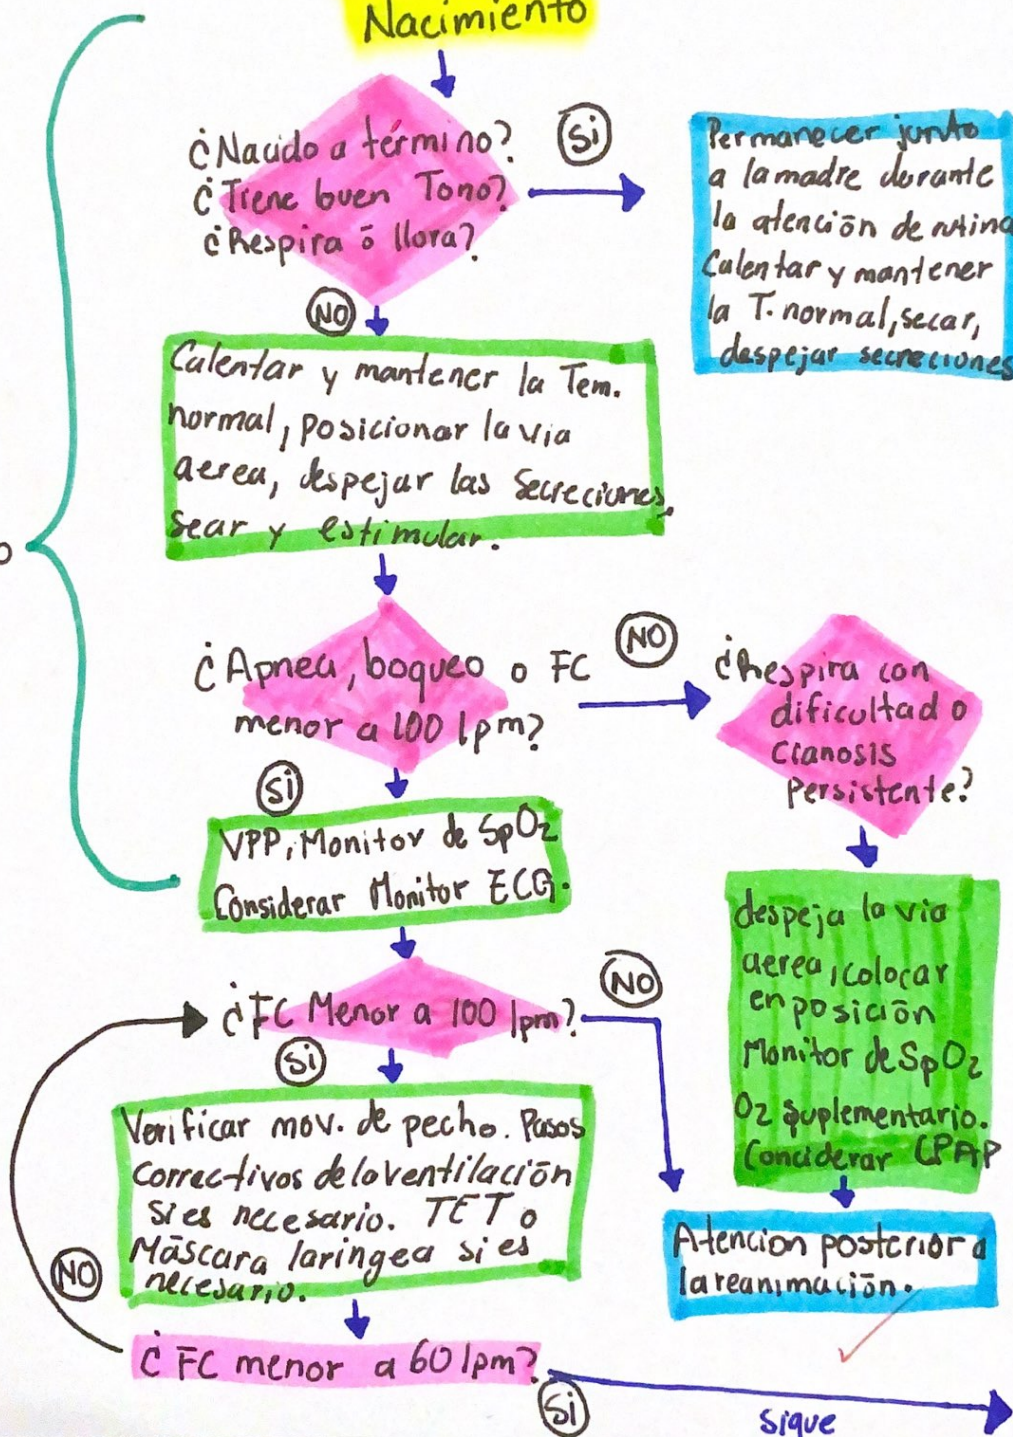 Nacimiento
¿Nacido a término?
¿Tiene buen Tono?
¿Respira ō llora?
Si
Permanecer junto
a la madre durante
la atenciōn de rutina
Calentar y mantener
la T. normal, secar,
despejar secreciones
NO
Calentar y mantener la Tem.
normal, posicionar la via
aerea, despejar las Secreciones,
sear y estimular.
¿Apnea, boqueo o FC
menor a 100 lpm?
NO
¿Respira con
dificultad o
cianosis
persistente?
Si
VPP, Monitor de SpO2
Considerar Monitor ECG.
despeja la via
aerea, colocar
en posiciōn
Monitor de SpO2
O2 suplementario.
Conciderar CPAP
¿FC Menor a 100 lpm?
NO
Si
Verificar mov. de pecho. Pasos
correctivos de la ventilaciōn
si es necesario. TET o
Māscara laringea si es
necesario.
Atencion posterior a
la reanimaciōn.
NO
¿FC menor a 60 lpm?
Si
sigue